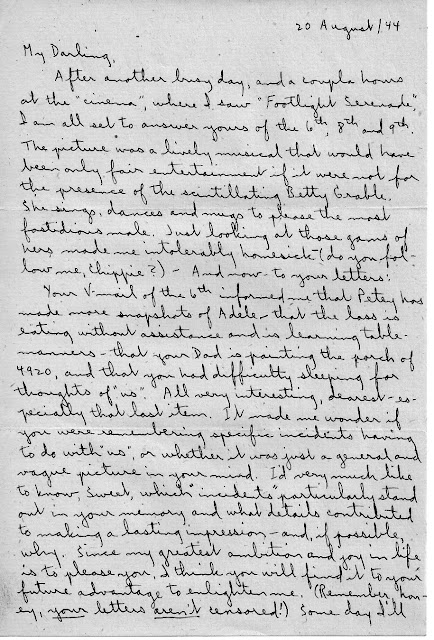 20 August/44
My Darling,
After another busy day, and a coupla hours
at the "cinema", where I saw "Footlight Serenade",
I am all set to answer yours of the 6th, 8th and 9th.
The picture was a lively musical that would have
been only fair entertainment if it were not for
the presence of the scintillating Betty Grable.
She sings, dances and mugs to please the most
fastidious male. Just looking at those gams of
hers made me intolerably homesick - (do you fol-
low me, Chippie?) - And now to your letters:
Your V-mail of the 6th informed me that Petey has
made more snapshots of Adele - that the lass is
eating without assistance and is learning table-
manners - that your Dad is painting the porch of
4920, and that you had difficulty sleeping for
thoughts of "us". All very interesting, dearest - es-
pecially that last item. It made me wonder if
you were remembering specific incidents having
to do with "us", or whether it was just a general and
vague picture in your mind. I'd very much like
to know, Sweet, which "incidents" particularly stand
out in your memory and what details contributed
to making a lasting impression - and, if possible,
why. Since my greatest ambition and joy in life
is to please you, I think you will find it to your
future advantage to enlighten me. (Remember, hon-
ey, your letters aren't censored!) Some day I'll